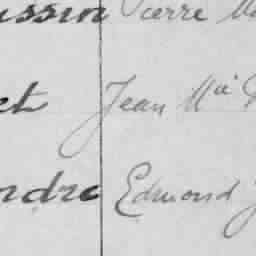 ussin Pierre
et Jean Mie
ndre Edmond J